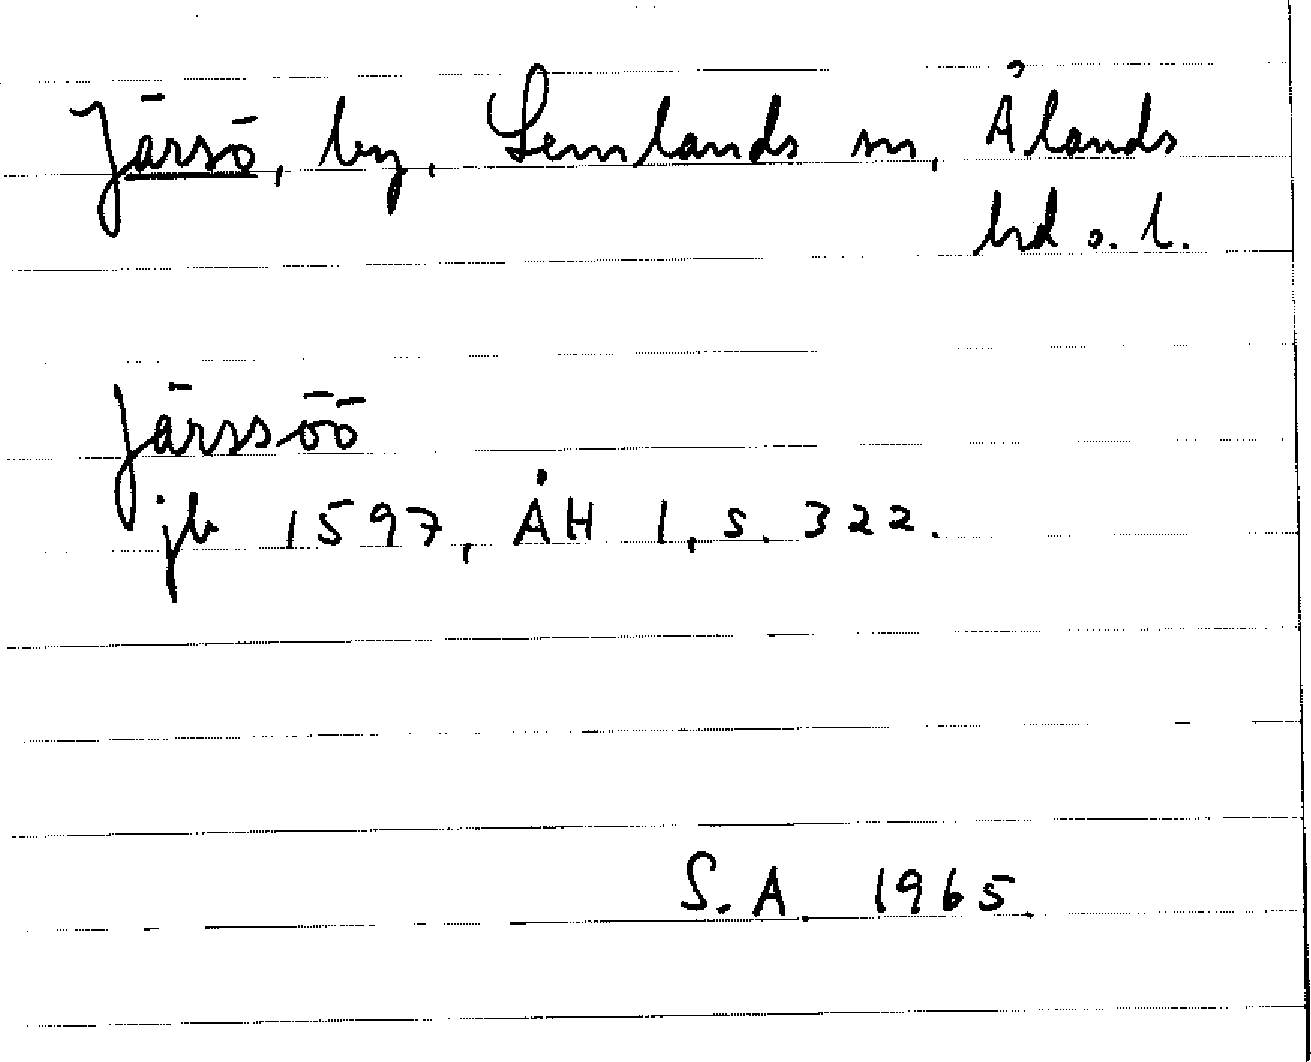 Järsö, by, Lemlands sn, Ålands
hrd o. l.
Järssöö
jb 1597, ÅH 1, s. 322.
S.A. 1965.